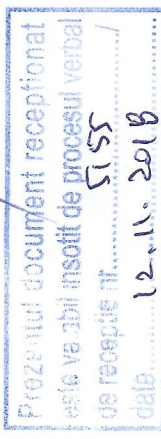 Prezentul document receptionat
este va abil insotit de procesul verba
de recepție nr..........
data ..... 11. 2018